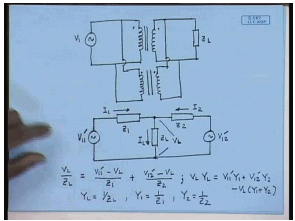 V₁
Z_L
I₁
I₂
Z₁
Z₂
V₁₁′
I_L
Z_L
V_L
V₁₂′
V_L/Z_L = (V₁₁′ − V_L)/Z₁ + (V₁₂′ − V_L)/Z₂ ; V_L Y_L = V₁₁′Y₁ + V₁₂′Y₂
− V_L(Y₁+Y₂)
Y_L = 1/Z_L , Y₁ = 1/Z₁ , Y₂ = 1/Z₂